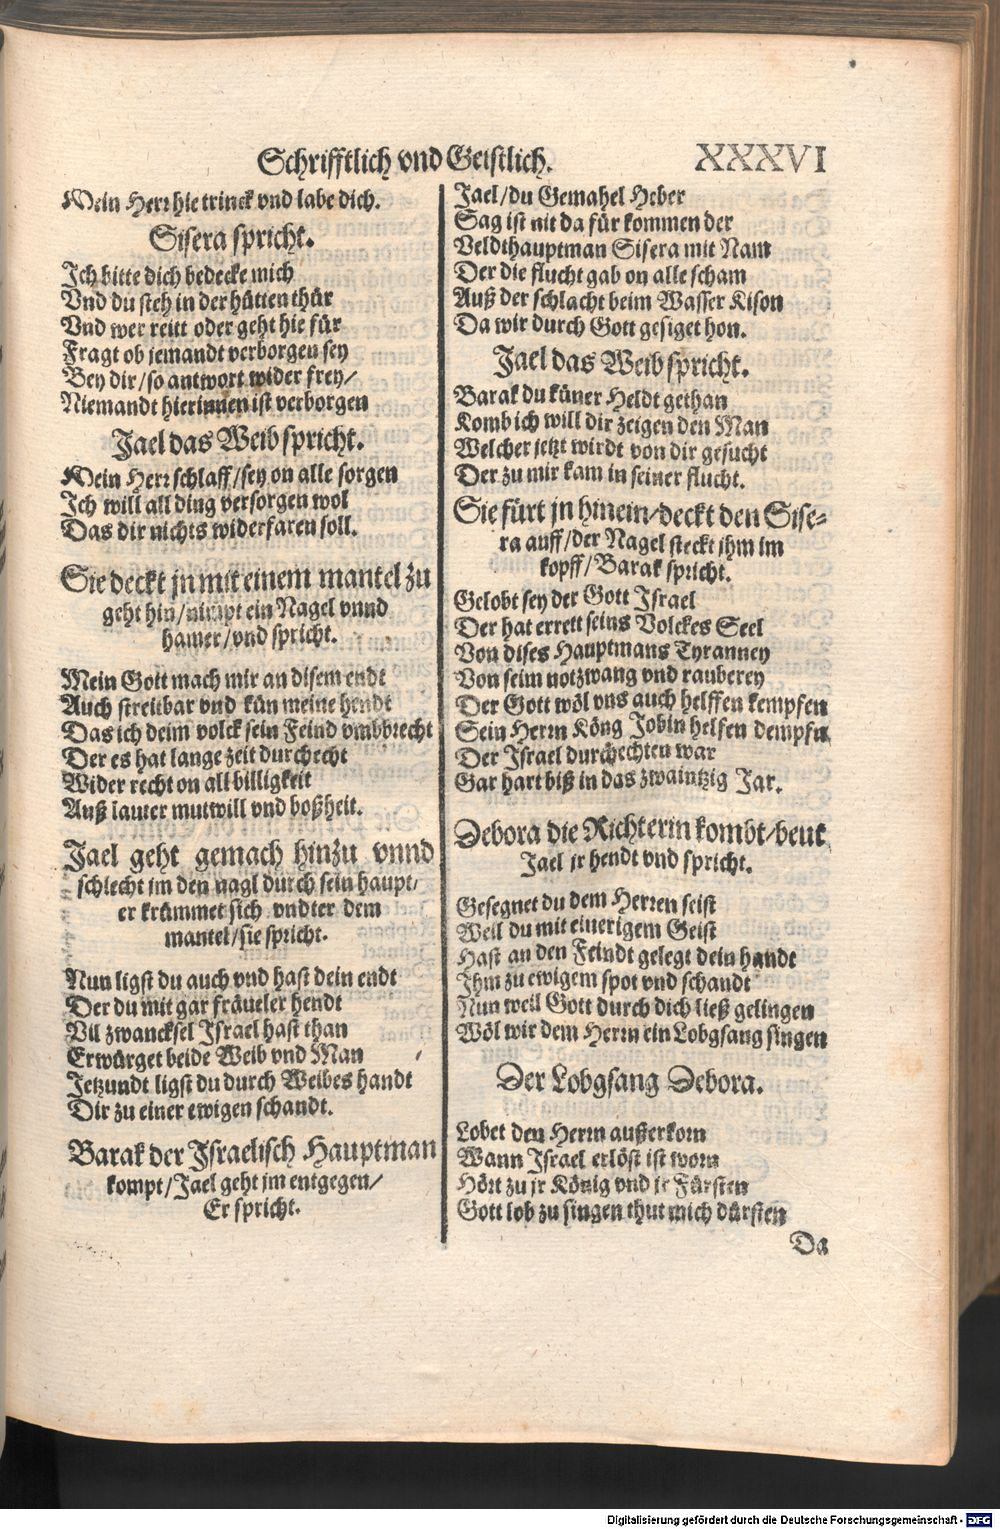 Schrifftlich vnd Geistlich. XXXVI
Mein Herr hie trinck vnd labe dich.
Sisera spricht.
Ich bitte dich bedecke mich
Vnd du steh in der hütten thür
Vnd wer reitt oder geht hie für
Fragt ob jemandt verborgen sey
Bey dir/so antwort wider frey/
Niemandt hierinnen ist verborgen
Jael das Weib spricht.
Mein Herr schlaff/sey on alle sorgen
Ich will all ding versorgen wol
Das dir nichts widerfaren soll.
Sie deckt jn mit einem mantel zu
geht hin/nimpt ein Nagel vnnd
hamer/vnd spricht.
Mein Gott mach mir an disem endt
Auch streitbar vnd kün meine hendt
Das ich deim volck sein Feind vmbbrecht
Der es hat lange zeit durchecht
Wider recht on all billigkeit
Auß lauter mutwill vnd boßheit.
Jael geht gemach hinzu vnnd
schlecht jm den nagl durch sein haupt/
er krümmet sich vndter dem
mantel/sie spricht.
Nun ligst du auch vnd hast dein endt
Der du mit gar fräueler hendt
Vil zwancksel Israel hast than
Erwürget beide Weib vnd Man
Jetzundt ligst du durch Weibes handt
Dir zu einer ewigen schandt.
Barak der Israelisch Hauptman
kompt/Jael geht jm entgegen/
Er spricht.
Jael/du Gemahel Heber
Sag ist nit da für kommen der
Veldthauptman Sisera mit Nam
Der die flucht gab on alle scham
Auß der schlacht beim Wasser Kison
Da wir durch Gott gesiget hon.
Jael das Weib spricht.
Barak du küner Heldt gethan
Komb ich will dir zeigen den Man
Welcher jetzt wirdt von dir gesucht
Der zu mir kam in seiner flucht.
Sie fürt jn hinein/deckt den Sise-
ra auff/der Nagel steckt jhm im
kopff/Barak spricht.
Gelobt sey der Gott Israel
Der hat errett seins Volckes Seel
Von dises Hauptmans Tyranney
Von seim notzwang vnd rauberey
Der Gott wöl vns auch helffen kempfen
Sein Herrn Köng Jobin helfen dempfn
Der Israel durchechten war
Gar hart biß in das zwaintzig Jar.
Debora die Richterin kombt/beut
Jael jr hendt vnd spricht.
Gesegnet du dem Herren seist
Weil du mit einerigem Geist
Hast an den Feindt gelegt dein handt
Ihm zu ewigem spot vnd schandt
Nun weil Gott durch dich ließ gelingen
Wöl wir dem Herrn ein Lobgsang singen
Der Lobgsang Debora.
Lobet den Herrn außerkorn
Wann Israel erlöst ist worn
Hört zu jr König vnd jr Fürsten
Gott lob zu singen thut mich dürsten
Da
Digitalisierung gefördert durch die Deutsche Forschungsgemeinschaft - DFG